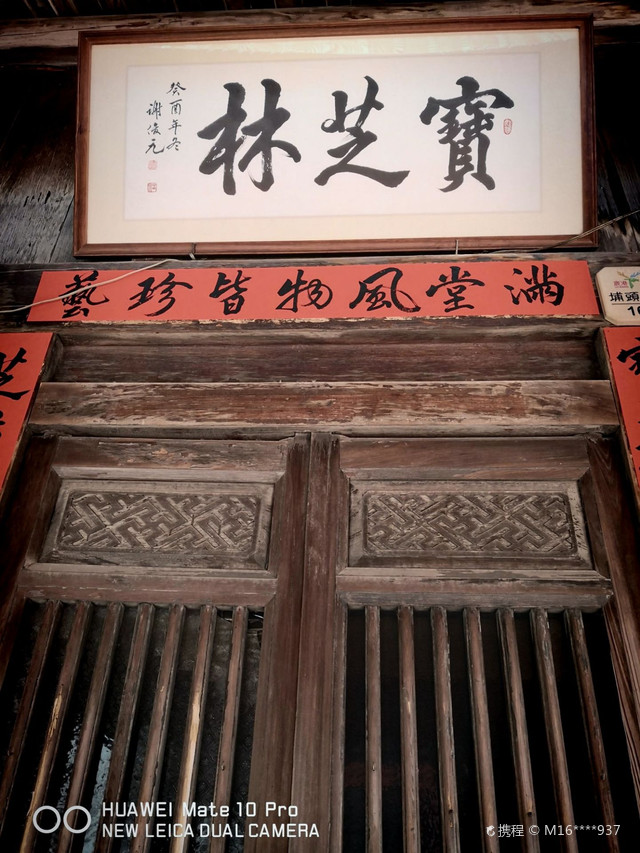 寶芝林
癸酉年冬
謝俊元
滿堂風物皆珍藝
埔頭
芝
HUAWEI Mate 10 Pro
NEW LEICA DUAL CAMERA
携程 © M16****937